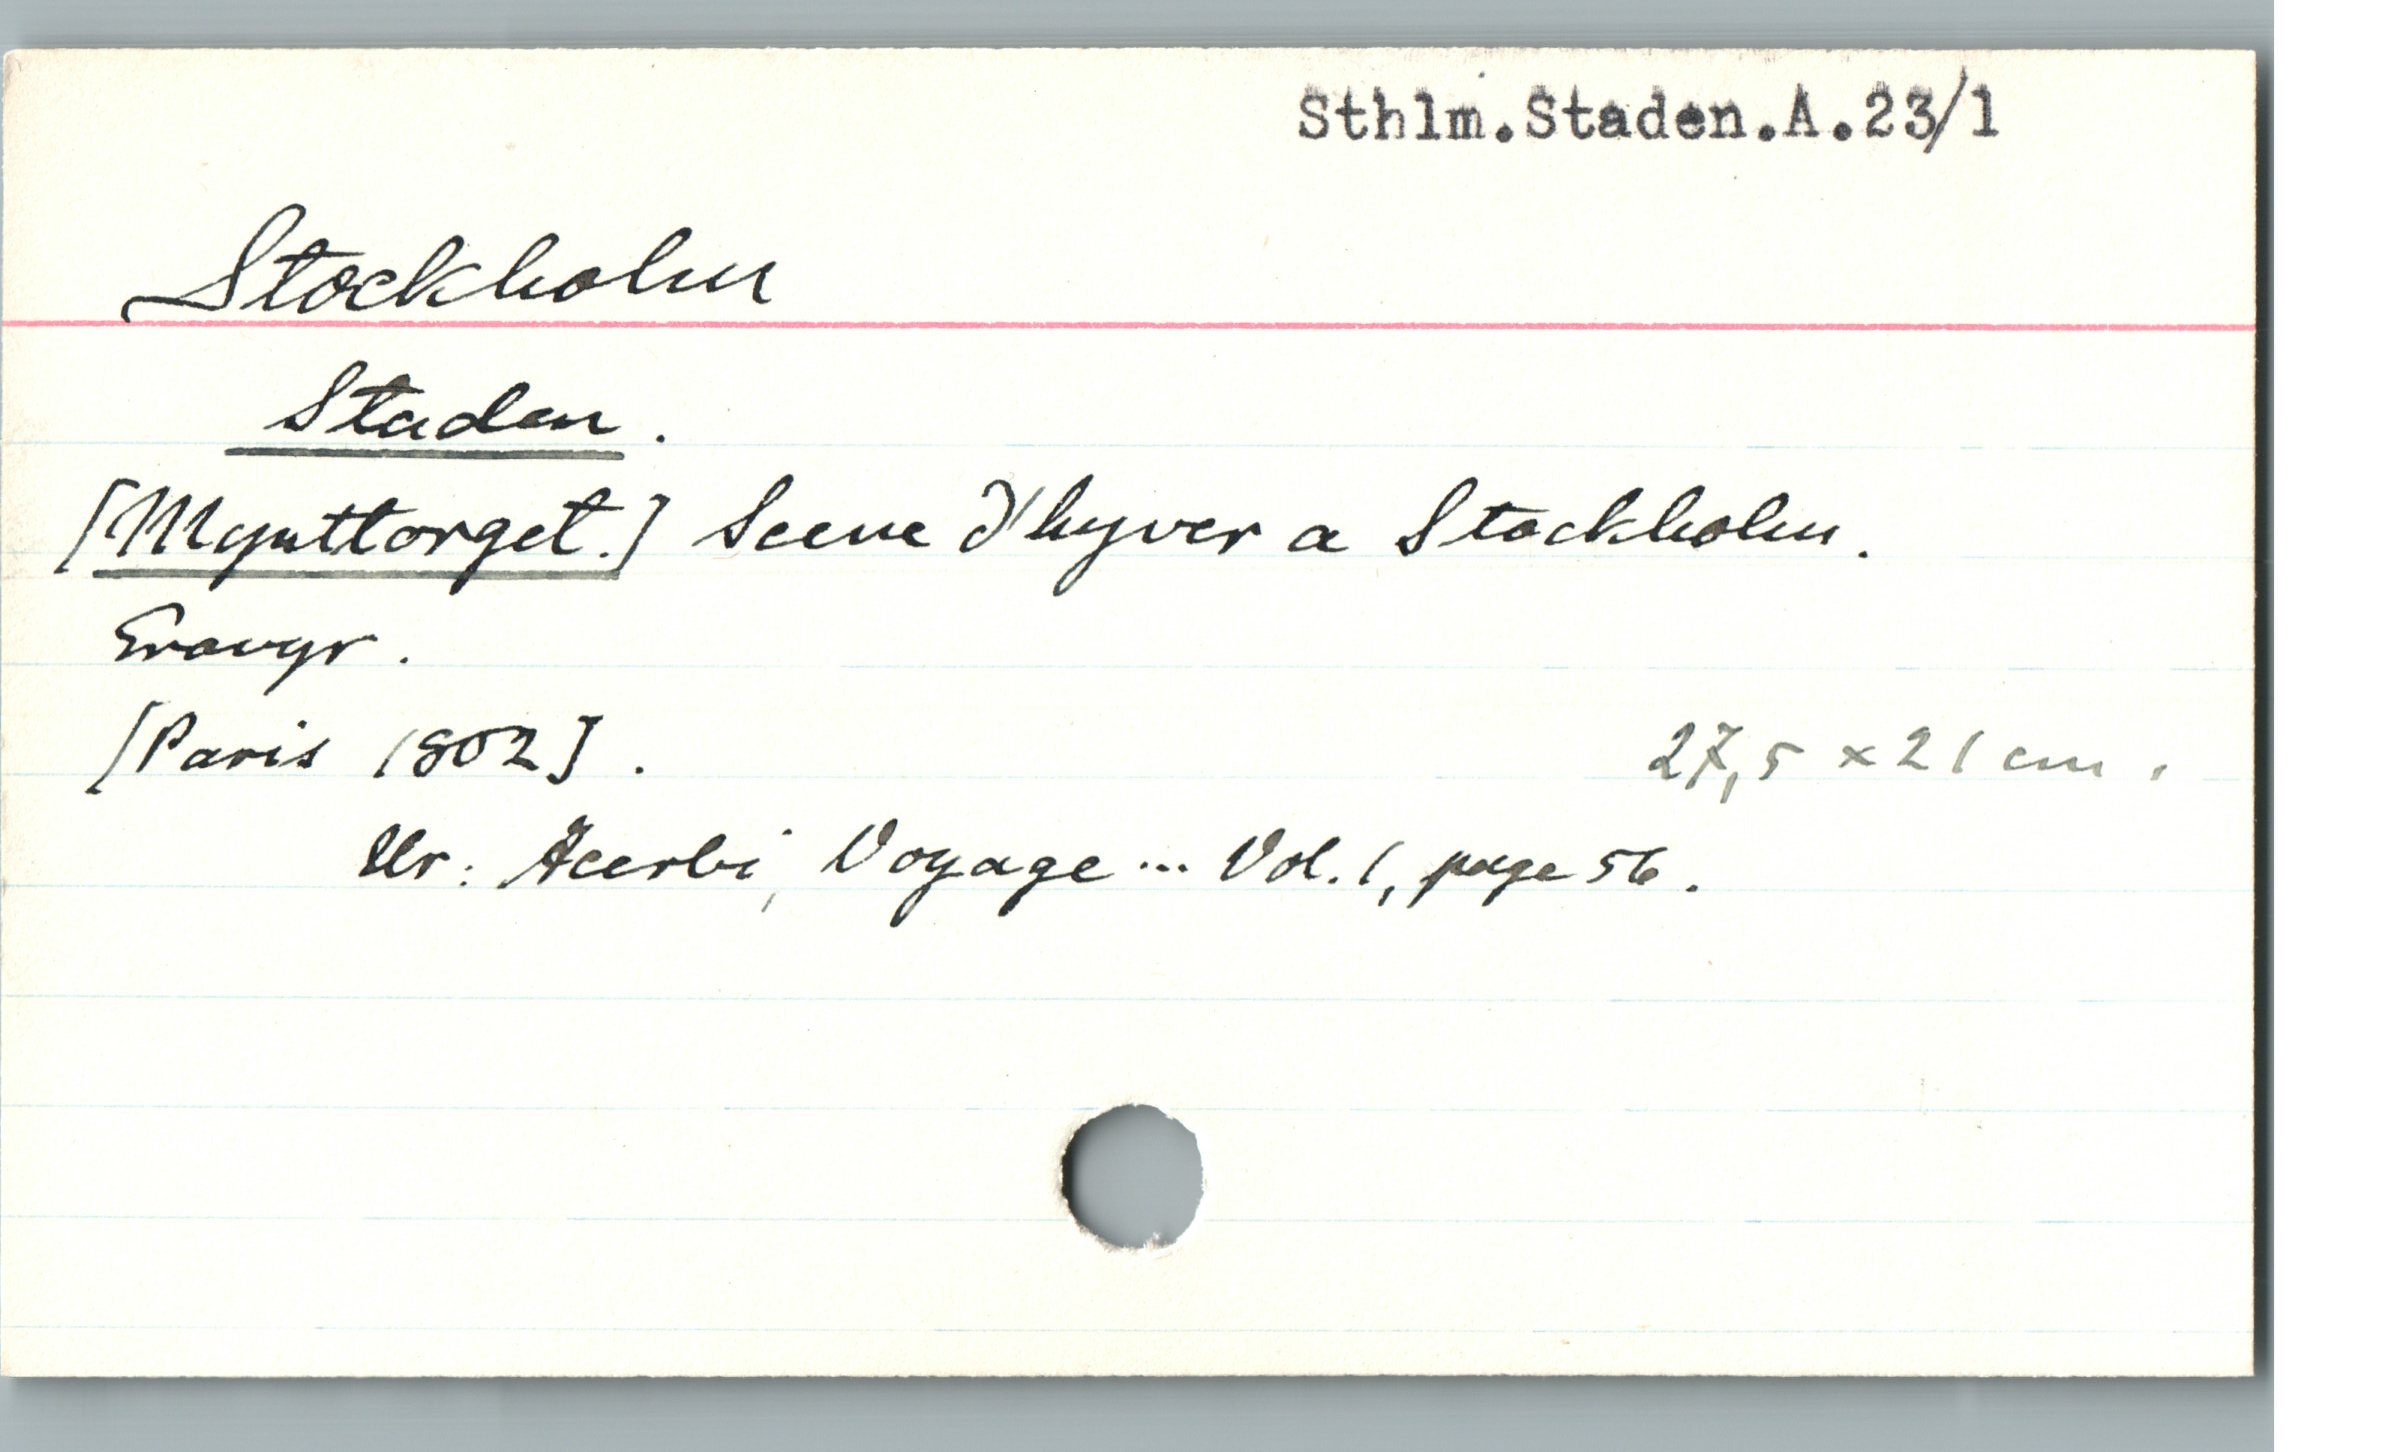 Sthlm.Staden.A.23/1
Stockholm
Staden.
[Mynttorget.] Scene d'hyver a Stockholm.
Gravyr.
[Paris 1802]. 27,5 x 21 cm.
Ur: Acerbi, Voyage... Vol. 1, page 56.